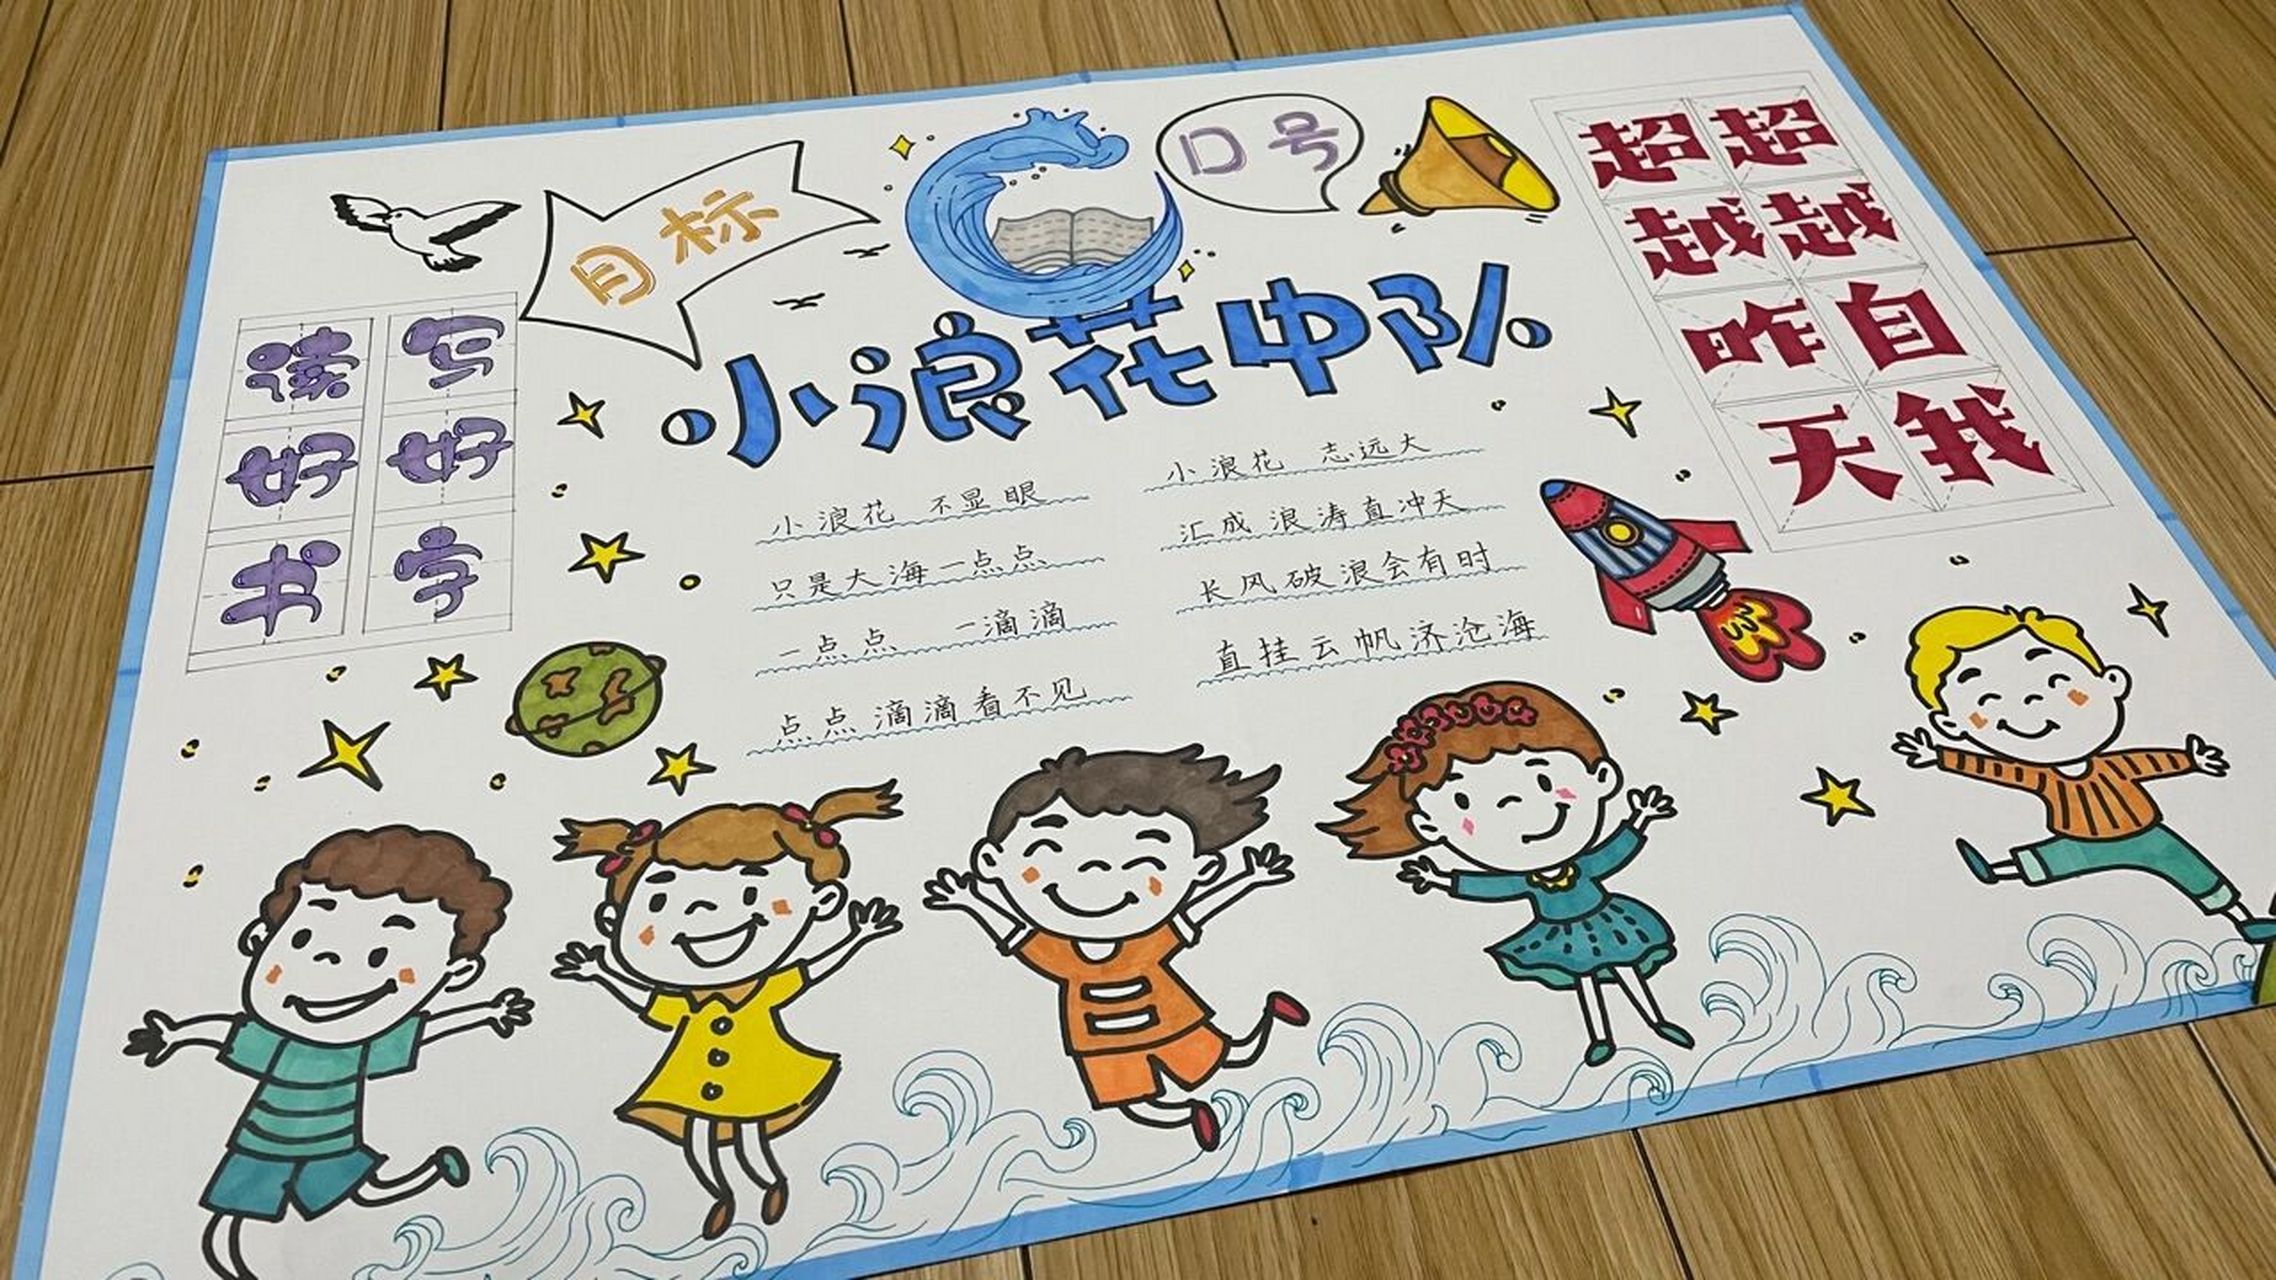 目标
口号
小浪花中队
读 写
好 好
书 字
超 超
越 越
昨 自
天 我
小浪花 不显眼
只是大海一点点
一点点 一滴滴
点点滴滴看不见
小浪花 志远大
汇成浪涛直冲天
长风破浪会有时
直挂云帆济沧海